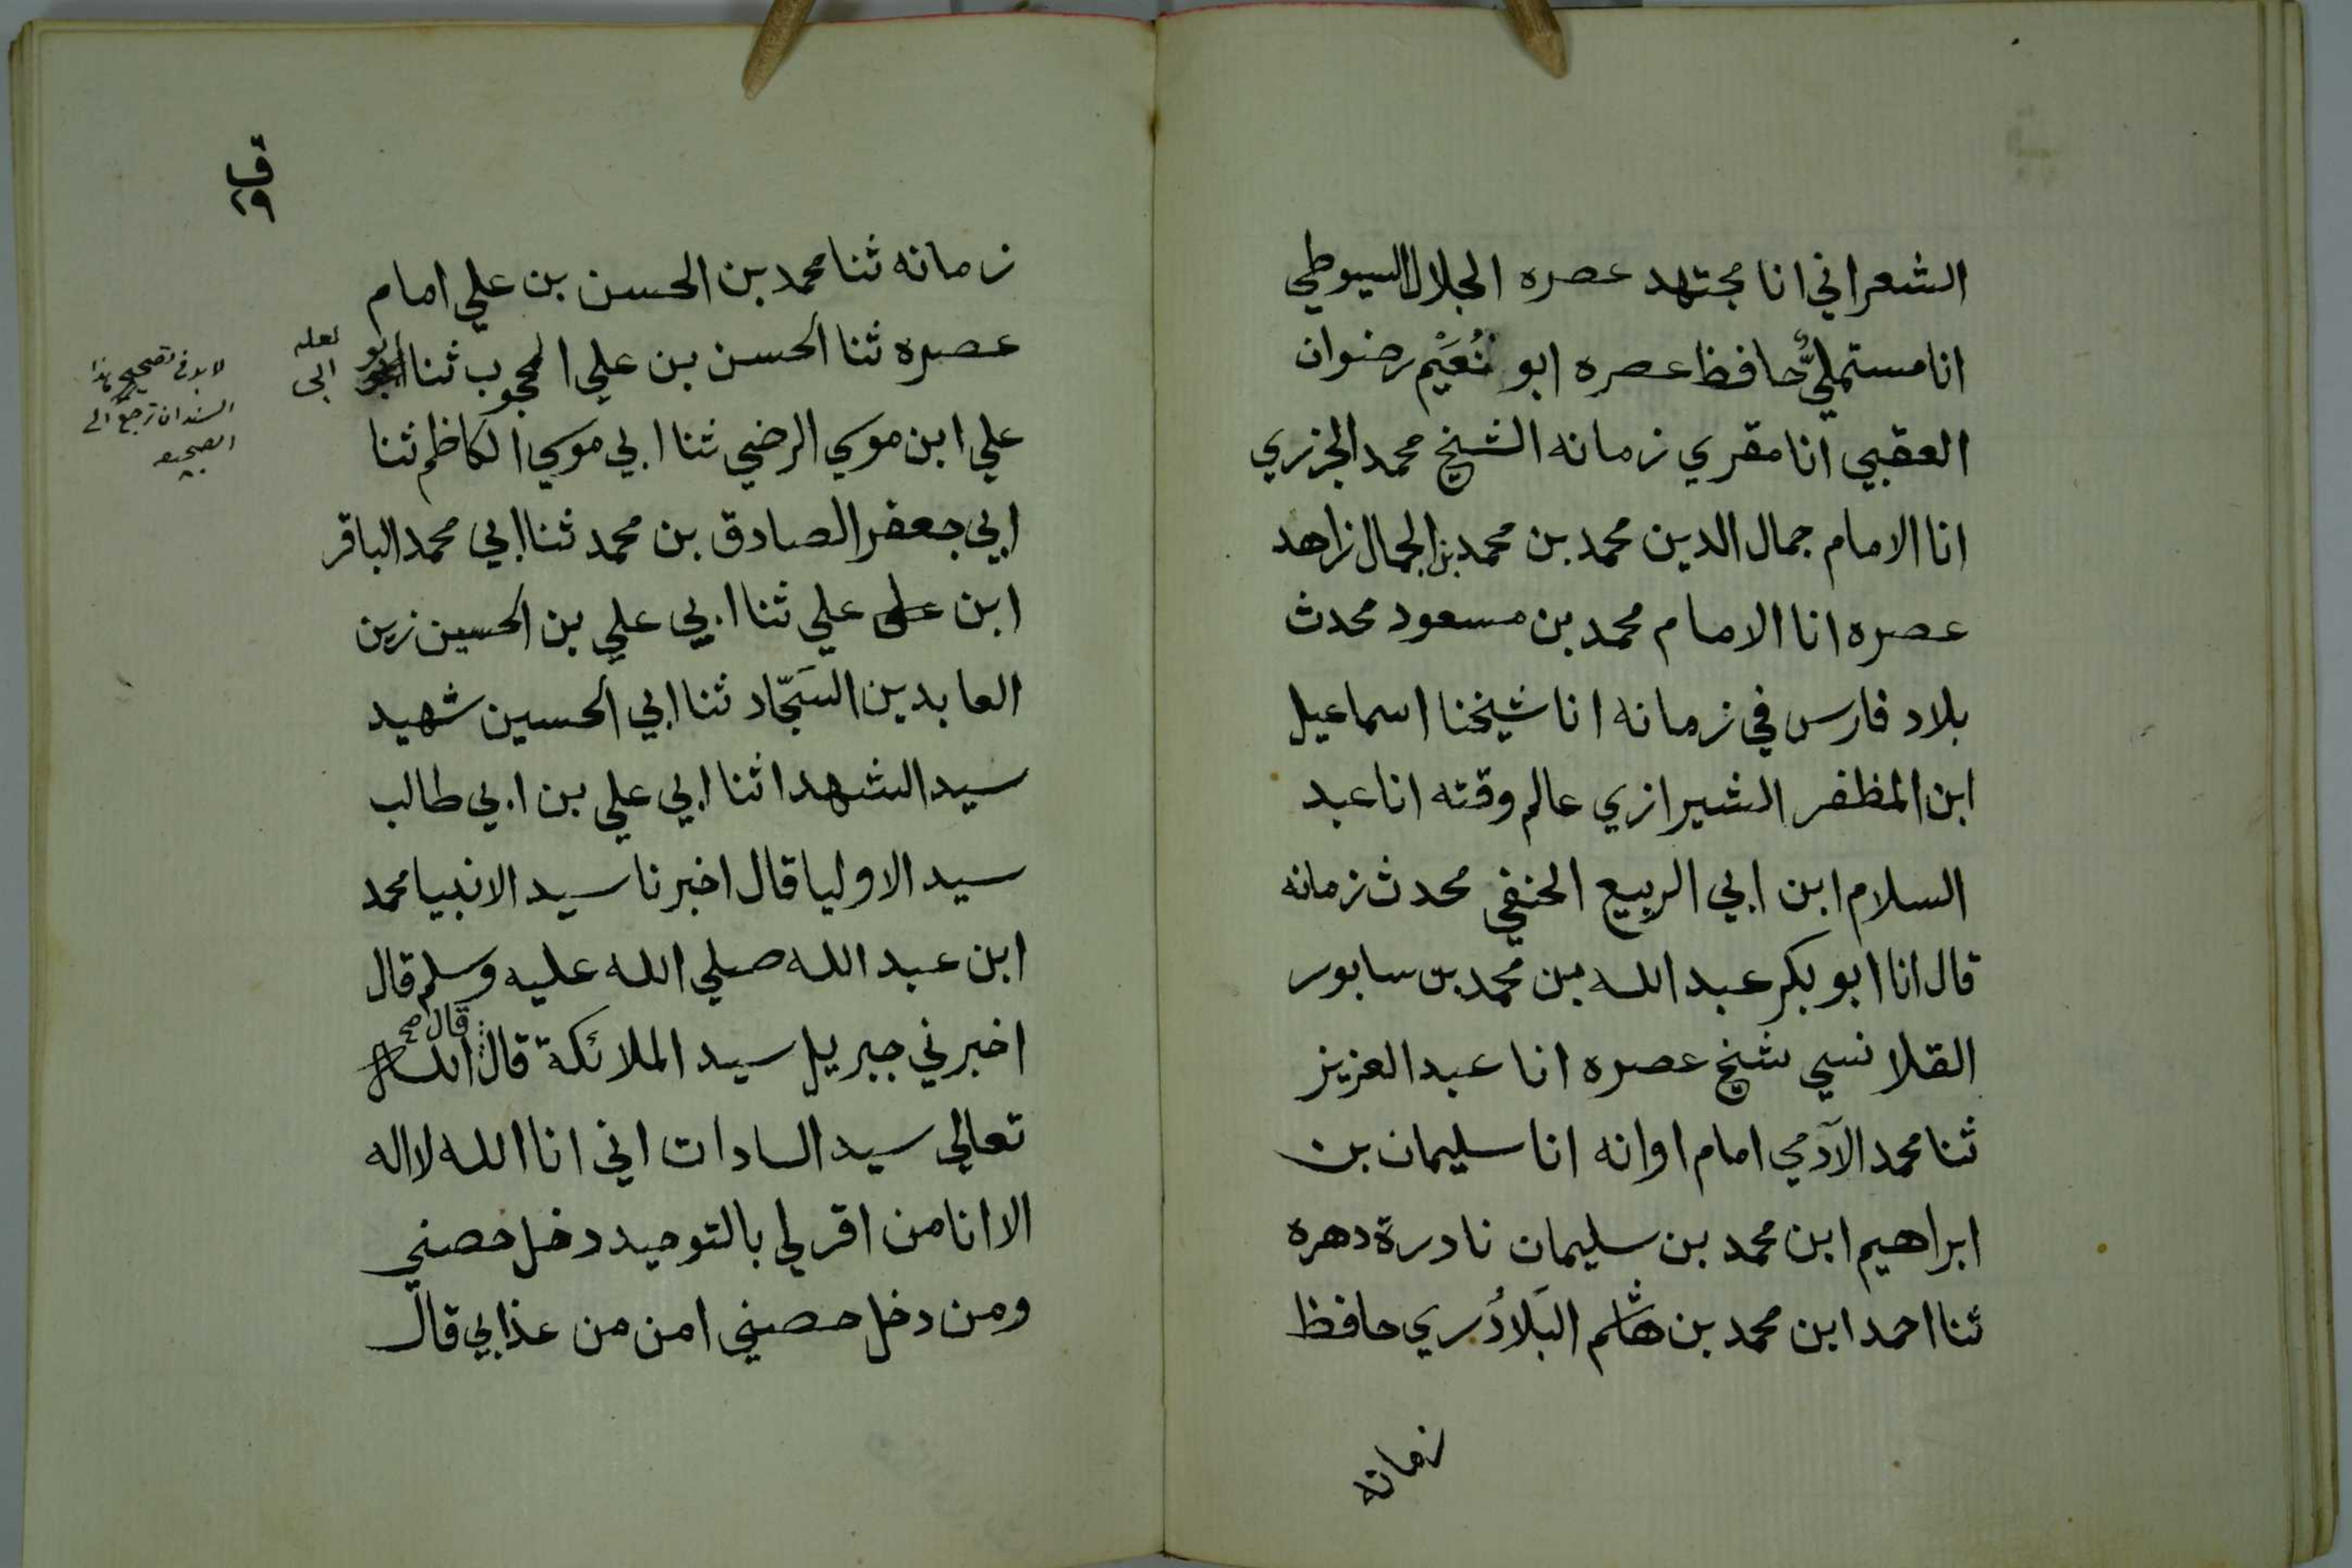 الشعراني انا مجتهد عصره الجلال السيوطي
انا مستملي حافظ عصره ابو نُعَيْم رضوان
العقبي انا مقري زمانه الشيخ محمد الجزري
انا الامام جمال الدين محمد بن محمد بن الجمال زاهد
عصره انا الامام محمد بن مسعود محدث
بلاد فارس في زمانه انا شيخنا اسماعيل
ابن المظفر الشيرازي عالم وقته انا عبد
السلام ابن ابي الربيع الحنفي محدث زمانه
قال انا ابو بكر عبد الله بن محمد بن سابور
القلانسي شيخ عصره انا عبد العزيز
ثنا محمد الآدمي امام اوانه انا سليمان بن
ابراهيم ابن محمد بن سليمان نادرة دهره
ثنا احمد ابن محمد بن هاشم البَلادُري حافظ
زمانه
ق
٢٩
زمانه ثنا محمد بن الحسن بن علي امام
عصره ثنا الحسن بن علي المحجوب ثنا ابو
لعله
ابي
علي ابن موسي الرضي ثنا ابي موسي الكاظم ثنا
ابي جعفر الصادق بن محمد ثنا ابي محمد الباقر
ابن على علي ثنا ابي علي بن الحسين زين
العابدين السَجّاد ثنا ابي الحسين شهيد
سيد الشهدا ثنا ابي علي بن ابي طالب
سيد الاوليا قال اخبرنا سيد الانبيا محمد
ابن عبد الله صلي الله عليه وسلم قال
اخبرني جبريل سيد الملائكة قال قال صح الله
تعالي سيد السادات اني انا الله لا اله
الا انا من اقر لي بالتوحيد دخل حصني
ومن دخل حصني امن من عذابي قال
لا بد في تصحيح هذا
السند ان ترجع الى
الصحيح